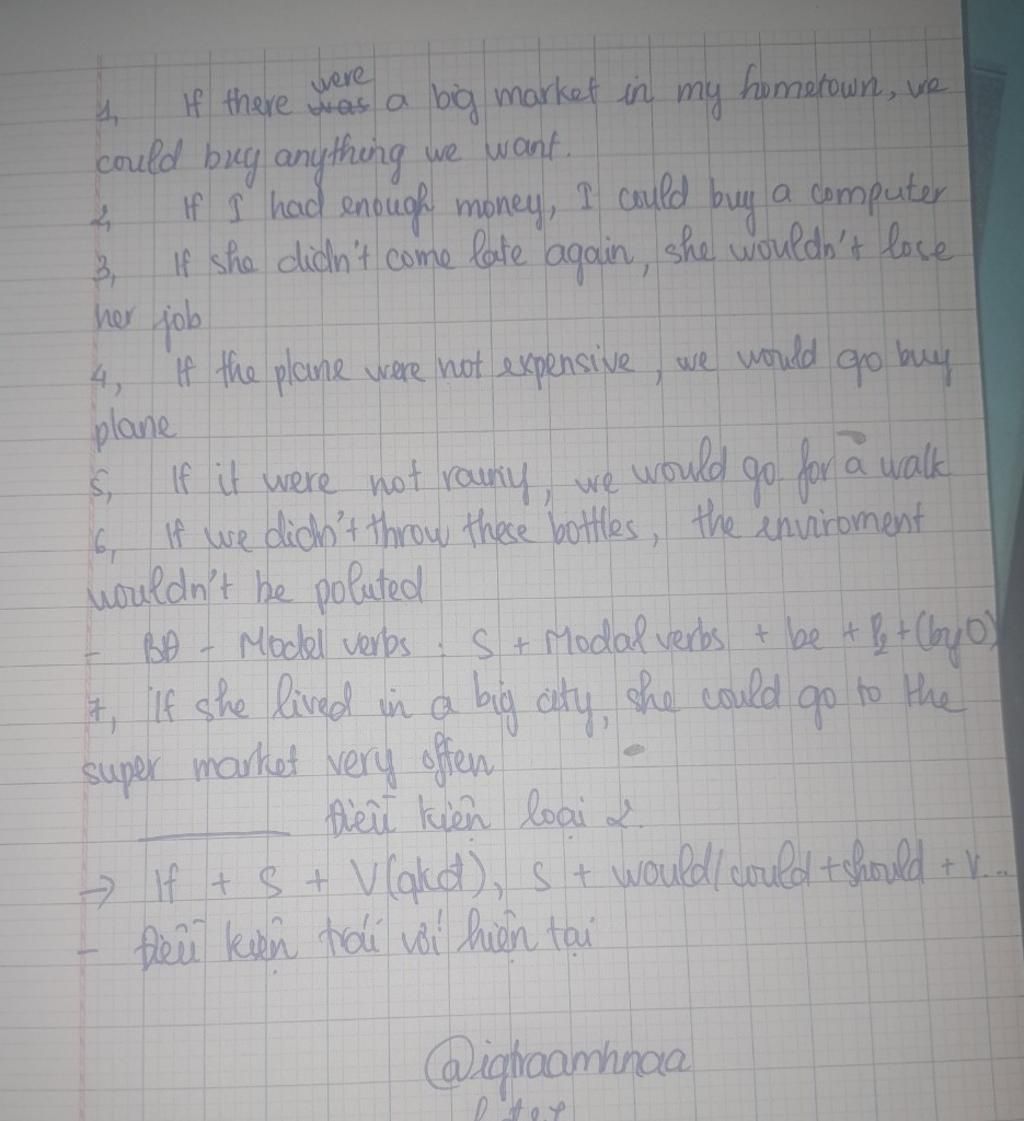 1, If there were was a big market in my hometown, we
could buy anything we want.
2, If I had enough money, I could buy a computer
3, If she didn't come late again, she wouldn't lose
her job
4, If the plane were not expensive, we would go buy
plane
5, If it were not rainy, we would go for a walk
6, If we didn't throw these bottles, the enviroment
wouldn't be poluted
- BĐ - Model verbs : S + Modal verbs + be + P2 + (by O)
7, If she lived in a big city, she could go to the
super market very often
Điều kiện loại 2
→ If + S + V(qkđ), S + would/could + should + V...
- Điều kiện trái với hiện tại
@ighaamhnaa